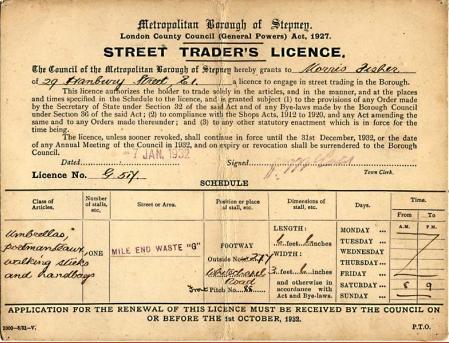 Metropolitan Borough of Stepney.
London County Council (General Powers) Act, 1927.
STREET TRADER'S LICENCE.
The Council of the Metropolitan Borough of Stepney hereby grants to Morris Fisher
of 29 Hanbury Street E.1. a licence to engage in street trading in the Borough.
This licence authorizes the holder to trade solely in the articles, and in the manner, and at the places
and times specified in the Schedule to the licence, and is granted subject (1) to the provisions of any Order made
by the Secretary of State under Section 32 of the said Act and of any Bye-laws made by the Borough Council
under Section 36 of the said Act; (2) to compliance with the Shops Acts, 1912 to 1920, and any Act amending the
same and to any Orders made thereunder; and (3) to any other statutory enactment which is in force for the
time being.
The licence, unless sooner revoked, shall continue in force until the 31st December, 1932, or the date of
any Annual Meeting of the Council in 1932, and on expiry or revocation shall be surrendered to the Borough
Council.
Dated 7 JAN. 1932 Signed
Town Clerk.
Licence No. G.57
SCHEDULE
Class of Articles. Number of stalls, etc. Street or Area. Position or place of stalls, etc. Dimensions of stall, etc. Days. Time.
From To
A.M. P.M.
Umbrellas, portmanteaux, walking sticks and handbags
ONE
MILE END WASTE "G"
FOOTWAY
Outside No. 277
Whitechapel Road
Pitch No. 88
LENGTH:
6 feet 6 inches
WIDTH:
3 feet 6 inches
and otherwise in accordance with Act and Bye-laws.
MONDAY
TUESDAY
WEDNESDAY
THURSDAY
FRIDAY
SATURDAY 8 9
SUNDAY
APPLICATION FOR THE RENEWAL OF THIS LICENCE MUST BE RECEIVED BY THE COUNCIL ON
OR BEFORE THE 1ST OCTOBER, 1932.
2000—8/31—V. P.T.O.